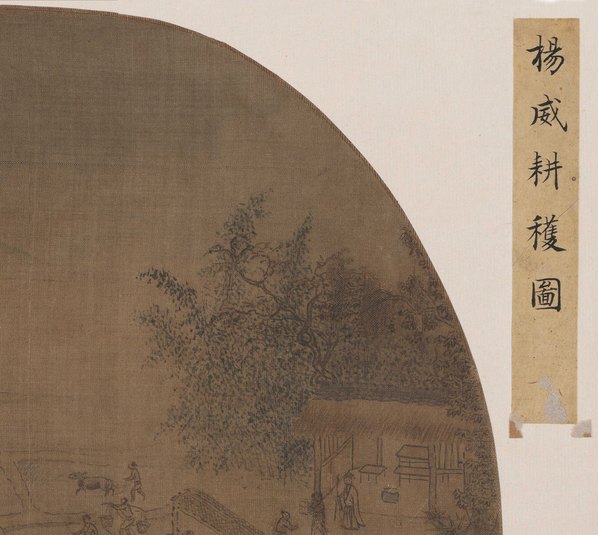 楊威耕穫圖